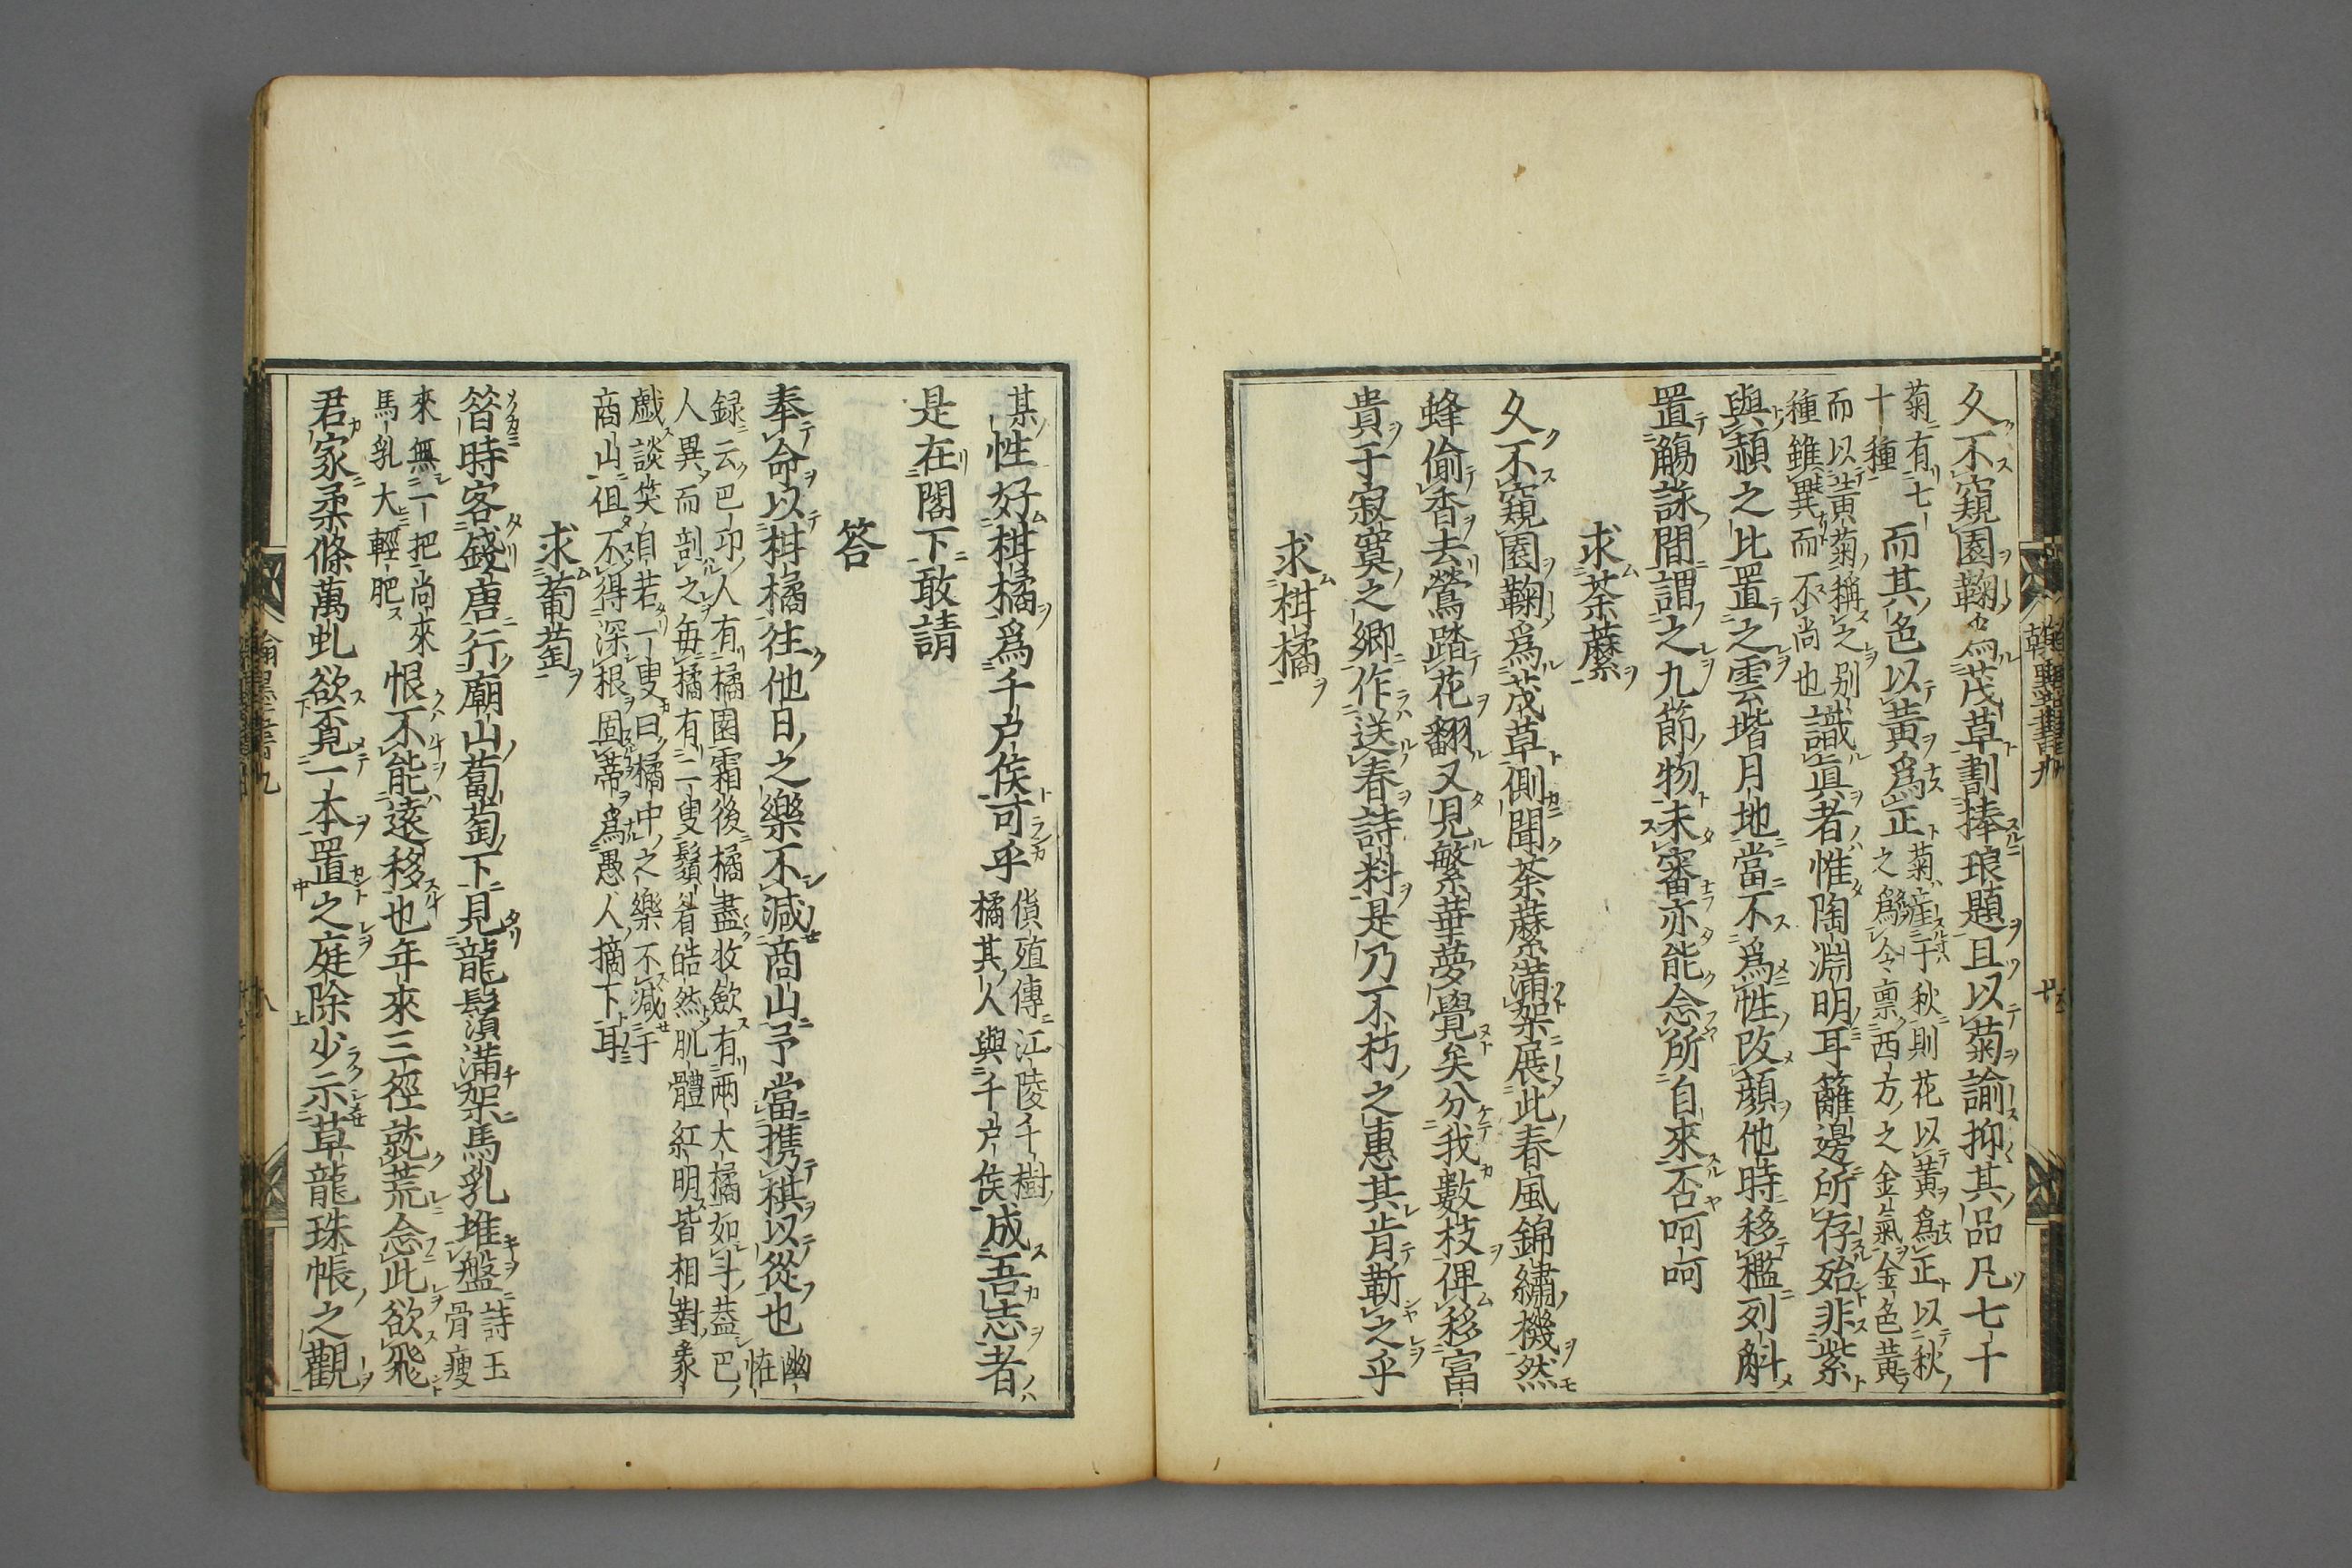 久不窺園鞠爲茂草割捧琅題且以菊諭抑其品凡七十
菊有七十種
而其色以黃爲正
菊產于秋則花以黃爲正以秋之爲令稟西方之金氣金色黃
而以黃菊稱之别種雖異而不尚也
識眞者惟陶淵明耳籬邊所存殆非紫
與頳之比置之雲堦月地當不爲性改顔他時移檻列斛
置觴詠間謂之九節物未審亦能念所自來否呵呵
求荼蘼
久不窺園鞠爲茂草側聞荼蘼滿架展此春風錦繡機然
蜂偷香去鶯踏花翻又見繁華夢覺矣分我數枝俾移富
貴于寂寞之鄉作送春詩料是乃不朽之惠其肯蘄之乎
求柑橘
某性好柑橘爲千户侯可乎
貨殖傳江陵千樹橘其人與千户侯
成吾志者
是在閣下敢請
答
奉命以柑橘往他日之樂不減商山予當携棋以從也
幽恠
録云巴卭人有橘園霜後橘盡收歛有兩大橘如斗葢巴
人異而剖之每橘有二叟鬚眉皓然肌體紅明皆相對象
戲談笑自若一叟曰橘中之樂不減于
商山但不得深根固蒂爲愚人摘下耳
求葡萄
曾時客錢唐行廟山蔔萄下見龍鬚滿架馬乳堆盤
詩玉骨瘦
來無一把尚來
馬乳大輕肥
恨不能遠移也年來三徑就荒念此欲飛
君家柔條萬虬欲覔一本置之庭除少示草龍珠帳之觀
翰墨全書九
八
翰墨全書九